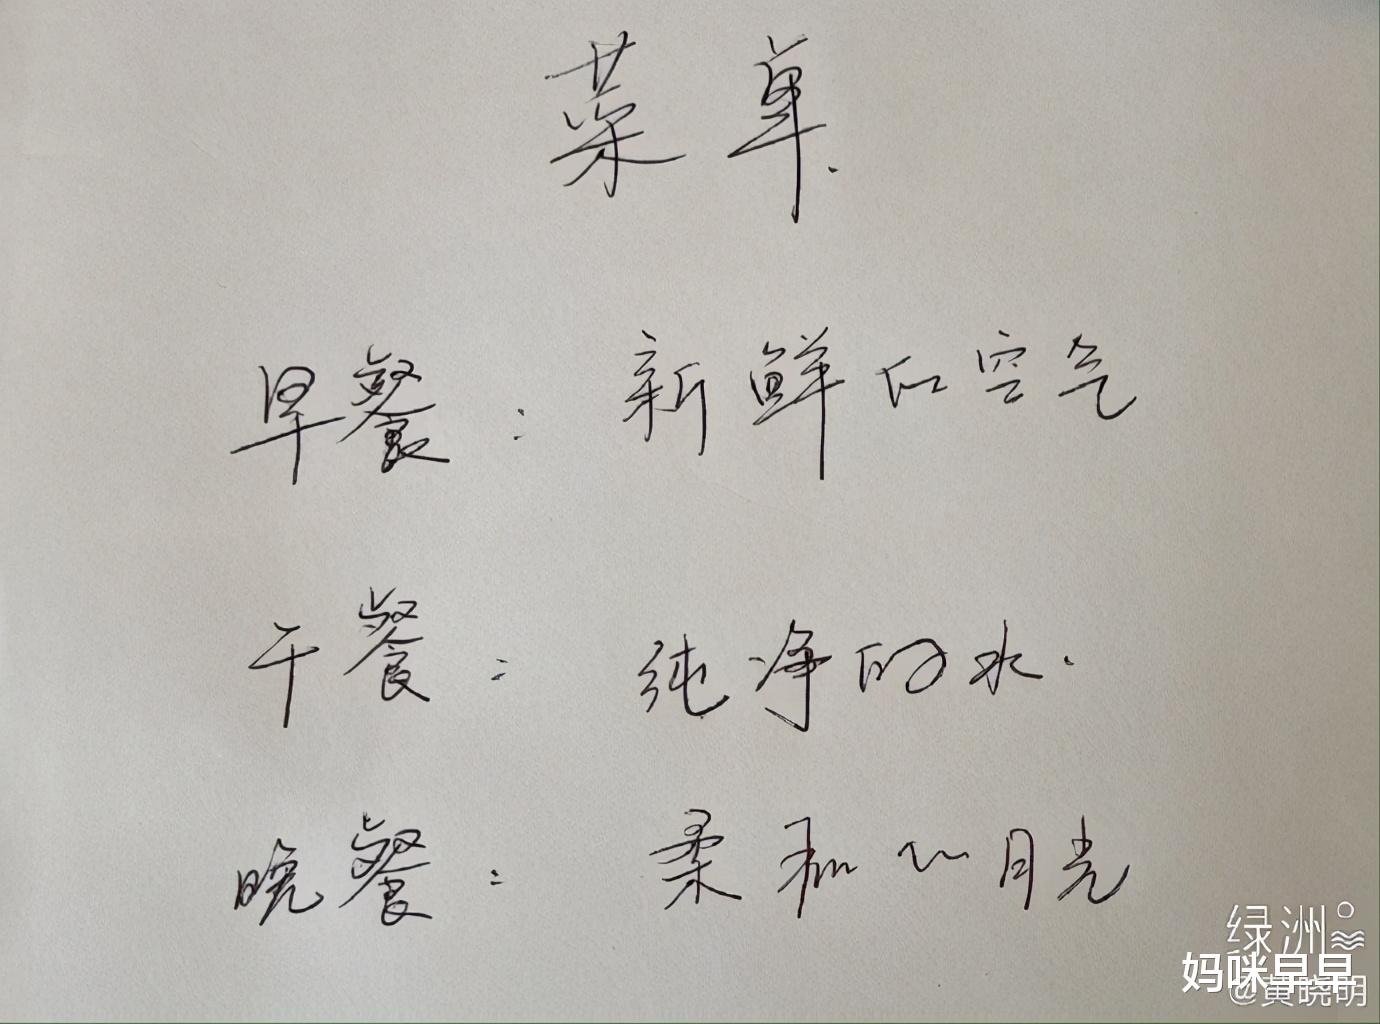 菜单.
早餐：新鲜的空气
午餐：纯净的水.
晚餐：柔和的月光
绿洲
妈咪早早
@黄晓明